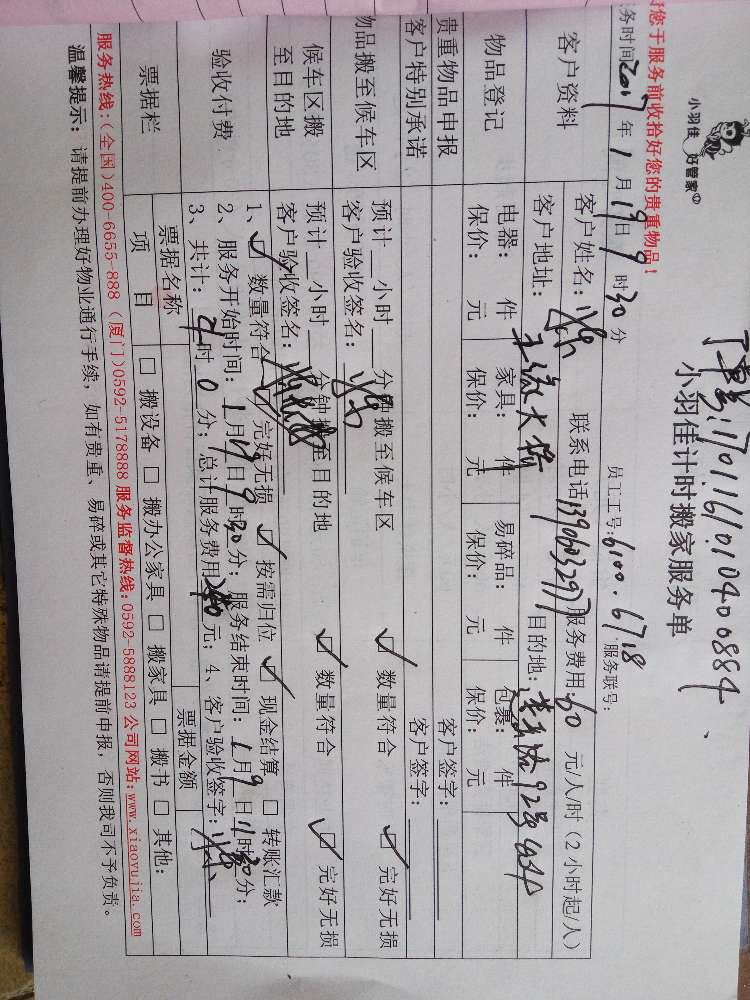 订单号:1701161010400884
小羽佳 好管家
小羽佳计时搬家服务单
请您于服务前收拾好您的贵重物品!
服务时间2017年1月19日9时30分 员工工号:6100.6718 服务联号:
客户资料 客户姓名: 联系电话13906032977服务费用:60元/人/时(2小时起/人)
客户地址: 目的地:
物品登记 电器: 件 家具: 件 易碎品: 件 包裹: 件
保价: 元 保价: 元 保价: 元 保价: 元
贵重物品申报 客户签字:
客户特别承诺 客户签字:
物品搬至候车区 预计 小时 分钟搬至候车区 ☑ 数量符合 ☑ 完好无损
客户验收签名:
候车区搬至目的地 预计 小时 分钟搬至目的地 ☑ 数量符合 ☑ 完好无损
客户验收签名:
验收付费 1、☑ 数量符合 ☑ 完好无损 ☑ 按需归位 ☑ 现金结算 □ 转账汇款
2、服务开始时间:1月19日9时30分;服务结束时间:1月9日11时30分;
3、共计:4时0分;总计服务费用240元;4、客户验收签字:
票据栏 票据名称 票据金额
项目 □ 搬设备 □ 搬办公家具 □ 搬家具 □ 搬书 □ 其他:
服务热线:(全国)400-6655-888 (厦门)0592-5178888 服务监督热线:0592-5888123 公司网站:www.xiaoyujia.com
温馨提示:请提前办理好物业通行手续,如有贵重、易碎或其它特殊物品请提前申报,否则我司不予负责。